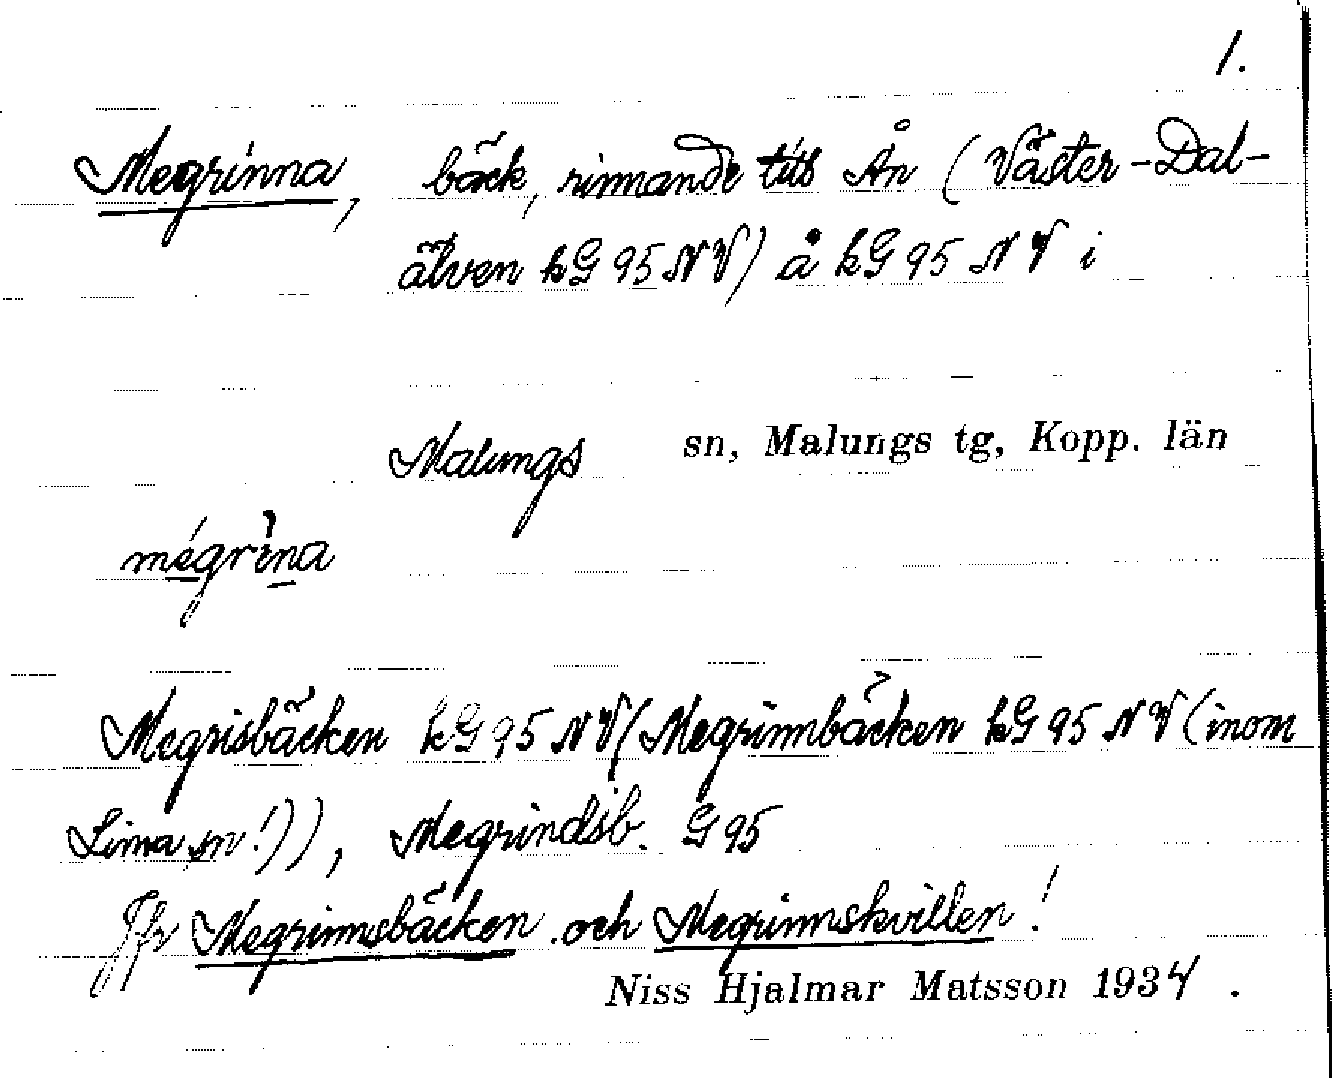 1.
Megrinna, bäck, rinnande till Ån (Väster-Dal-
älven kG 95 NV) å kG 95 NV i
Malungs sn, Malungs tg, Kopp. län
mégrìna
Megrisbäcken kG 95 NV (Megrinnbäcken kG 95 NV (inom
Lima sn!)), Megrindsb. G 95
Jfr Megrinnsbäcken och Megrinnskvillen!
Niss Hjalmar Matsson 1934.